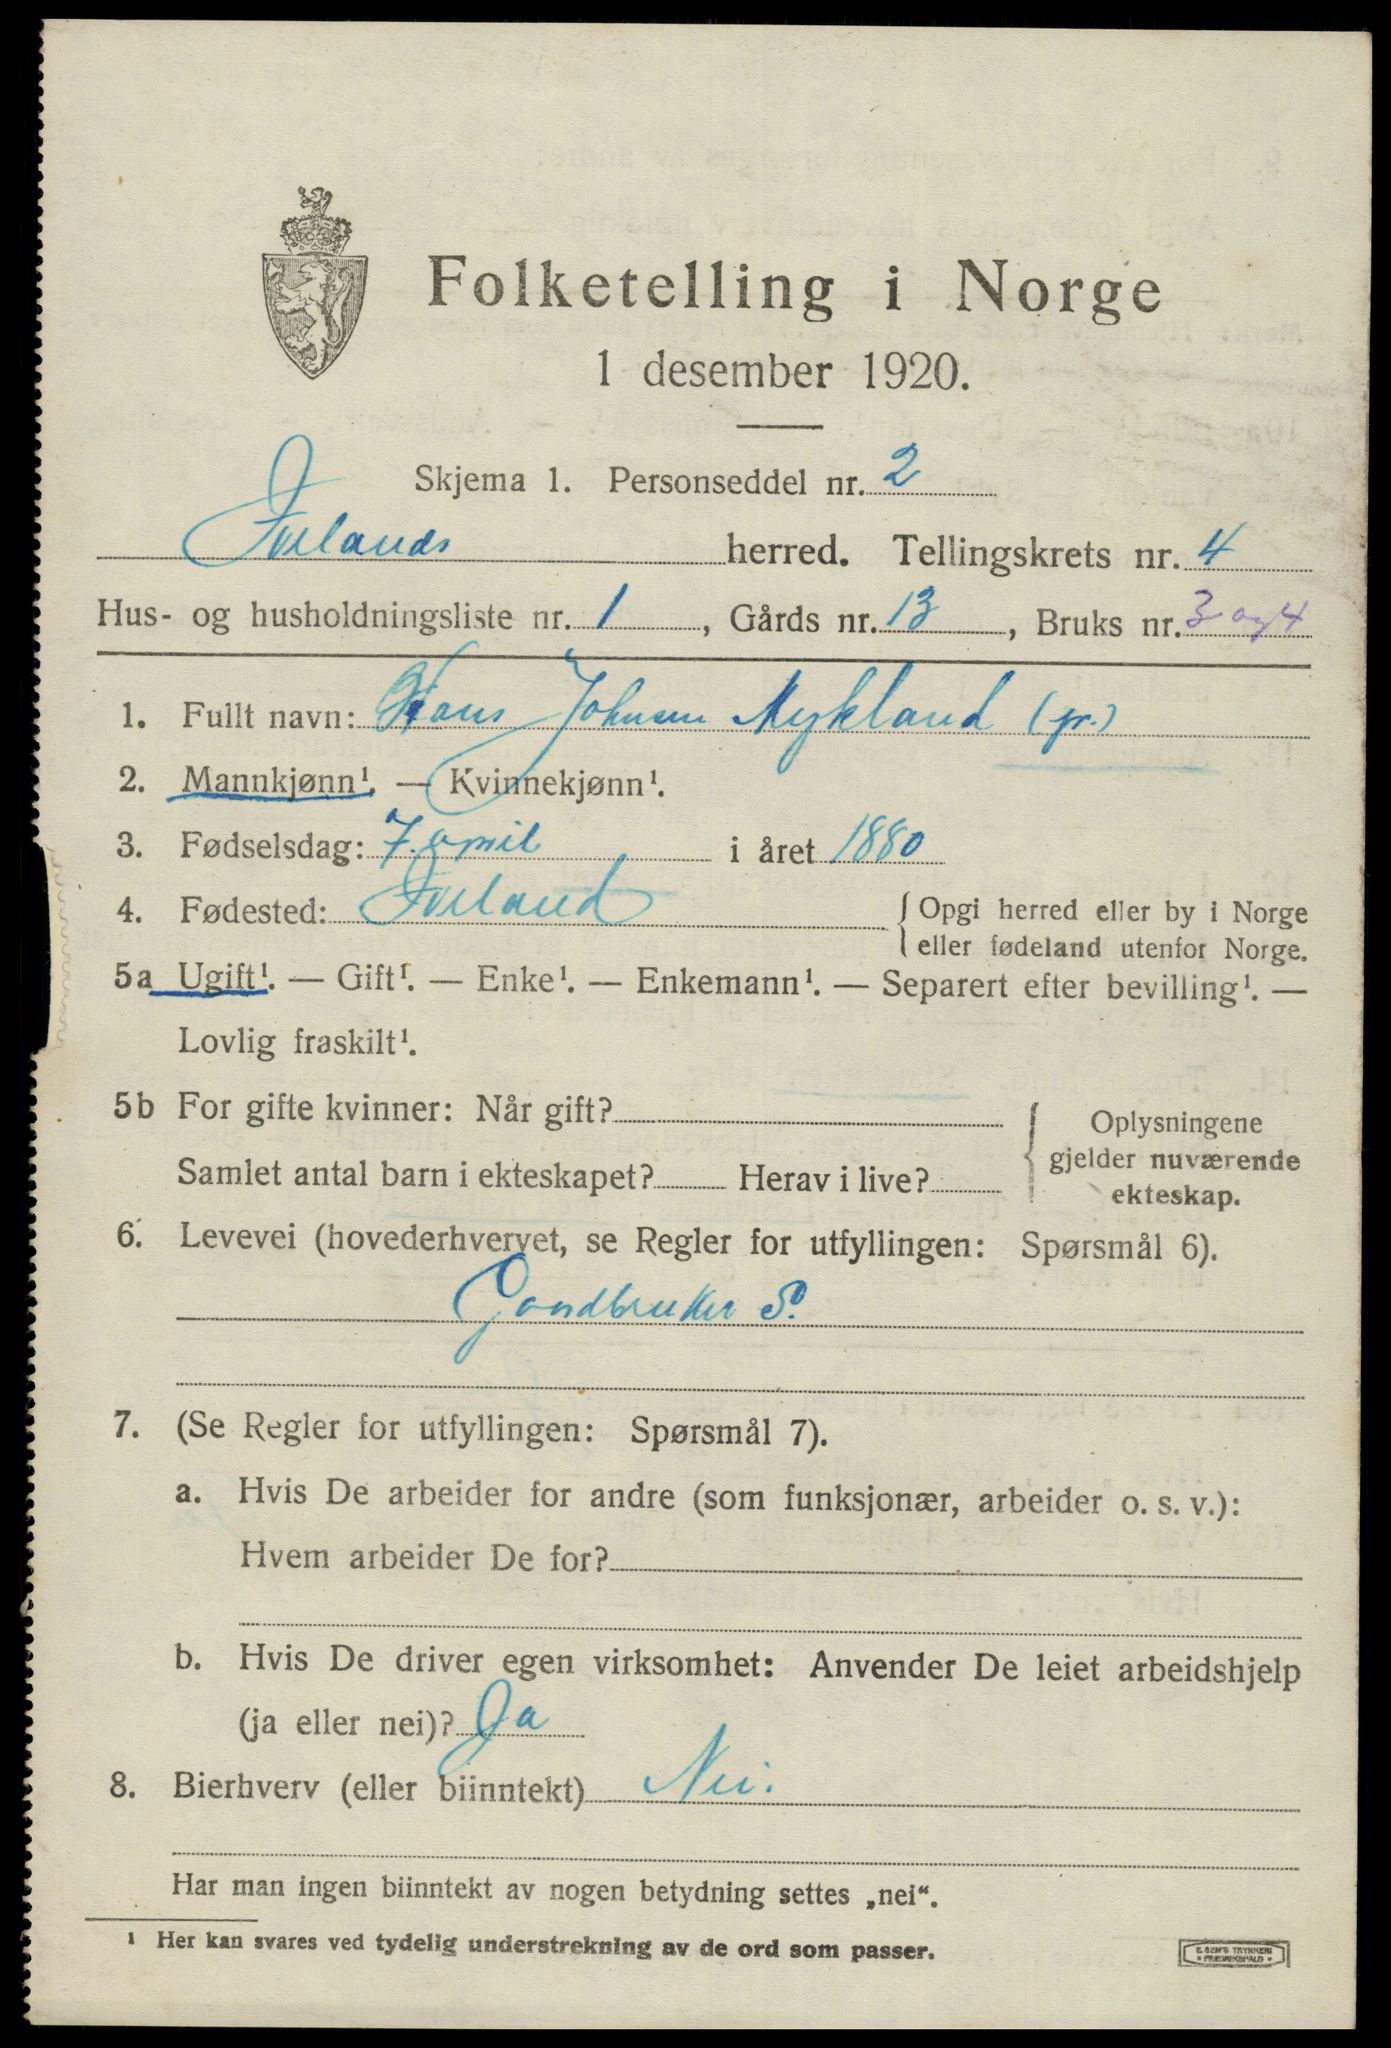 Folketelling i Norge
1 desember 1920.
Skjema 1. Personseddel nr. 2
Iveland herred. Tellingskrets nr. 4
Hus- og husholdningsliste nr. 1, Gårds nr. 13, Bruks nr. 3 og 4
1. Fullt navn: Hans Johnsen Mykland (jr.)
2. Mannkjønn¹. — Kvinnekjønn¹.
3. Fødselsdag: 7. april i året 1880
4. Fødested: Iveland { Opgi herred eller by i Norge
eller fødeland utenfor Norge.
5a Ugift¹. — Gift¹. — Enke¹. — Enkemann¹. — Separert efter bevilling¹. —
Lovlig fraskilt¹.
5b For gifte kvinner: Når gift? { Oplysningene
gjelder nuværende
Samlet antal barn i ekteskapet? Herav i live?
ekteskap.
6. Levevei (hovederhvervet, se Regler for utfyllingen: Spørsmål 6).
Gaardbruker S.
7. (Se Regler for utfyllingen: Spørsmål 7).
a. Hvis De arbeider for andre (som funksjonær, arbeider o. s. v.):
Hvem arbeider De for?
b. Hvis De driver egen virksomhet: Anvender De leiet arbeidshjelp
(ja eller nei)? Ja
8. Bierhverv (eller biinntekt) Nei.
Har man ingen biinntekt av nogen betydning settes „nei“.
¹ Her kan svares ved tydelig understrekning av de ord som passer.
E. SEM'S TRYKKERI
• FREDRIKSHALD •